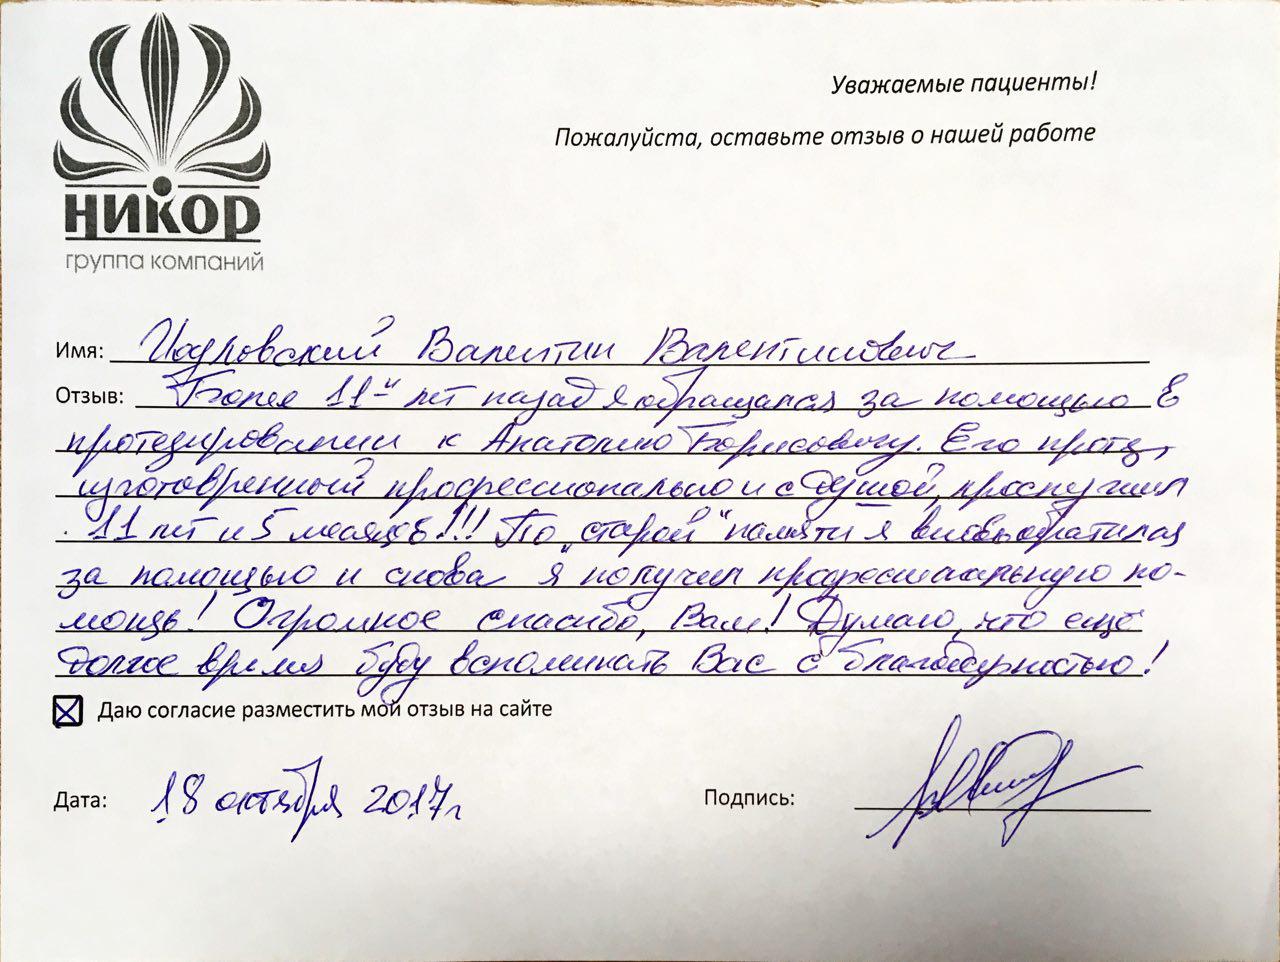 НИКОР
группа компаний
Уважаемые пациенты!
Пожалуйста, оставьте отзыв о нашей работе
Имя: Валентин Валентинович
Отзыв: Более 11и лет назад я обращался за помощью в
протезировании к Анатолию Борисовичу. Его протез,
изготовленный профессионально и с душой, прослужил
11 лет и 5 месяцев!!! По „старой" памяти я вновь обратился
за помощью и снова я получил профессиональную по-
мощь! Огромное спасибо, Вам! Думаю, что ещё
долгое время буду вспоминать Вас с благодарностью!
Даю согласие разместить мой отзыв на сайте
Дата: 18 октября 2017г
Подпись: